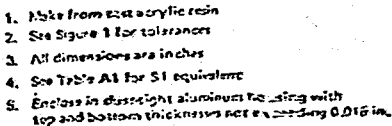 1. Make from cast acrylic resin
2. See Figure 1 for tolerances
3. All dimensions are inches
4. See Table A1 for SI equivalent
5. Enclose in aluminum housing with
top and bottom thicknesses not exceeding 0.016 in.